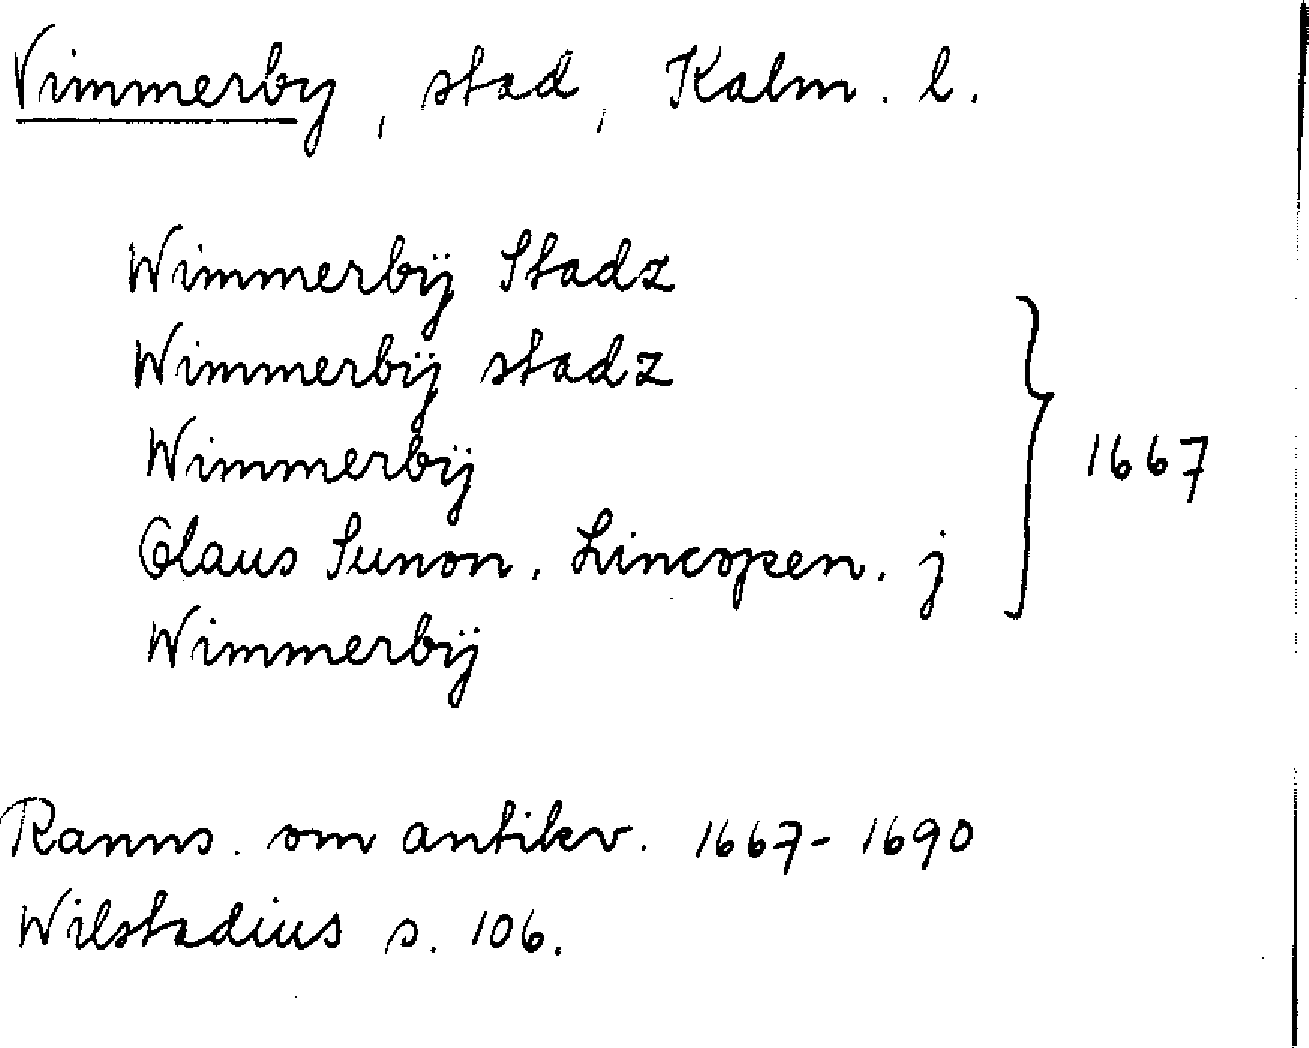 Vimmerby, stad, Kalm. l.
Wimmerbÿ Stadz
Wimmerbÿ stadz
Wimmerbÿ
Olaus Sunon. Lincopen. j
Wimmerbÿ
1667
Ranns. om antikv. 1667-1690
Wilstadius s. 106.